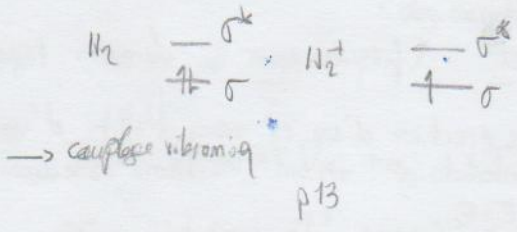 H₂ — σ* H₂⁺ — σ*
⥮ σ ↑ σ
→ couplage vibroniq
p13